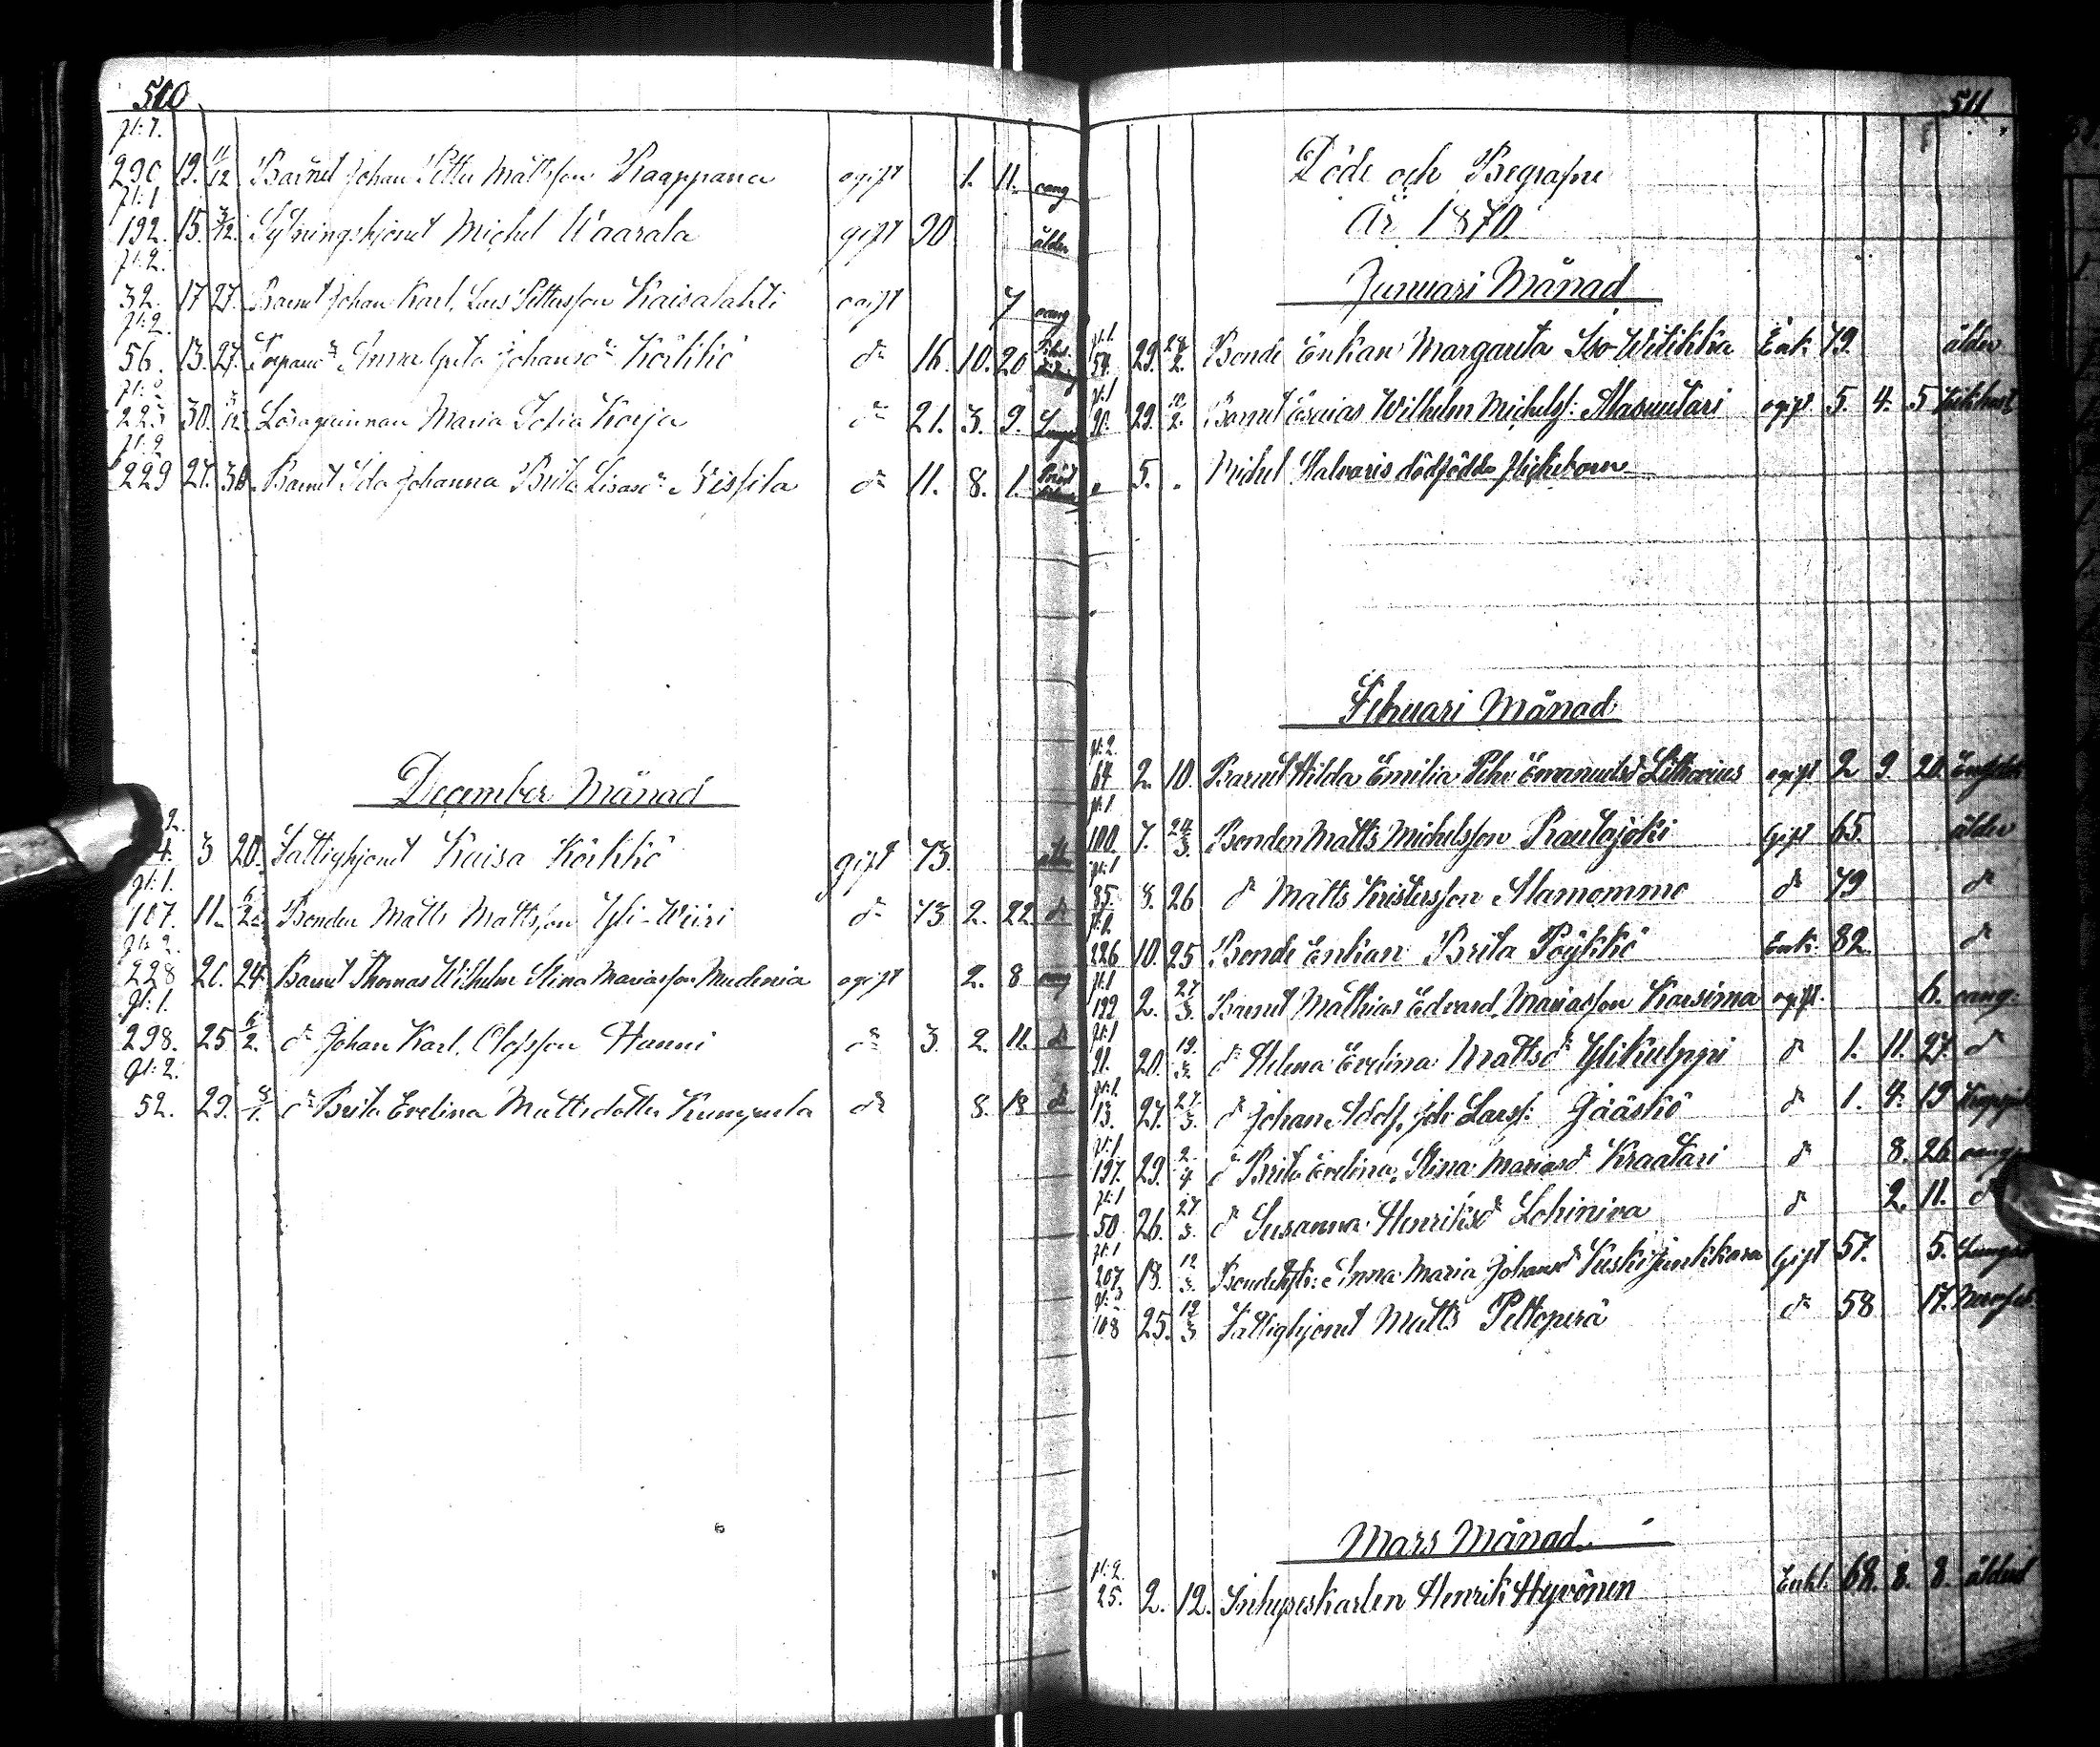 510
pl: 1.
290 19. 11/12 Barnet Johan Petter Mattsson Kaappana ogift 1. 11. oang
pl: 1
192. 15. 3/12. Sytningshjonet Michel Waarala gift 90 ålder
pl: 2.
32. 17 27. Barnet Johan Karl, Lars Pettersson Kaisalahti ogift 7 oang
pl: 2.
56. 13. 27. Anna Greta Johansdr Körkkö dr 16. 10. 20
225 30. 5/12. Lösaqvinnan Maria Sofia Korja dr 21. 3. 9.
pl: 2
229 27. 30. Barnet Ida Johanna Brita Lisasdr Nissila dr 11. 8. 1.
December Månad
2.
4. 3 20. Fattighjonet Kaisa Körkkö gift 73. ålder
pl: 1.
107. 11. Bonden Matts Mattsson Yli-Wiiri dr 73 2. 22 dr
pl: 2.
228 26. 24. Barnet Thomas Wilhelm Stina Mariasson Mudenia ogift 2. 8 oang
pl: 1.
298. 25 6/2. dr Johan Karl, Olofsson Hanni dr 3. 2. 11. dr
pl: 2.
52. 29. 8/1. dr Brita Evelina Mattsdotter Kumpula dr 8. 18 dr
511
Döde och Begrafne
År 1870
Januari Månad
pl: 1
54. 29. 24/2. Bonde Enkan Margareta Iso-Wilikka Enk: 79. ålder
pl: 1
90. 29. 20/2. Barnet Esaias Wilhelm Michelss: Alaruutari ogift 5. 4. 5 Kikhosta
" 5. " Michel Halvaris dödfödda flickebarn
Februari Månad
pl: 2.
64 2. 10. Barnet Hilda Emilia Pehr Emanuelsdr Lithovius ogift 2 9. 20.
pl: 1
100 7. 24/3. Bonden Matts Michelsson Rautajoki Gift 65. ålder
pl: 1
85. 8. 26 dr Matts Kristersson Alamommo dr 79 dr
pl: 2.
226 10. 25 Bonde Enkan Brita Pöykkö Enk: 82. dr
pl: 1
199 2. 27/3. Barnet Mathias Edvard, Mariasson Karsima ogift. 6. oang:
pl: 1
91. 20. 19/3. dr Helena Evelina Mattsdr Ylikulppi dr 1. 11. 27. dr
pl: 1.
13. 27. 27/3. dr Johan Adolf, Joh: Larss: Jääskö dr 1. 4. 19
pl: 1
197. 29. 2/4 dr Brita Evelina, Stina Mariasdr Kraatari dr 8. 26 oang
pl: 1
50 26. 27/3. dr Susanna Henriksdr Lohiniva dr 2. 11. dr
pl: 1
207 18. 12/3. Bondehst: Anna Maria Johansdr Gift 57. 5.
108 25. 19/3 Fattighjonet Matts Peltoperä dr 58 17.
Mars Månad
pl: 2.
25. 2. 12. Inhyseskarlen Henrik Hyvönen Enkl: 68. 8. 8. ålder